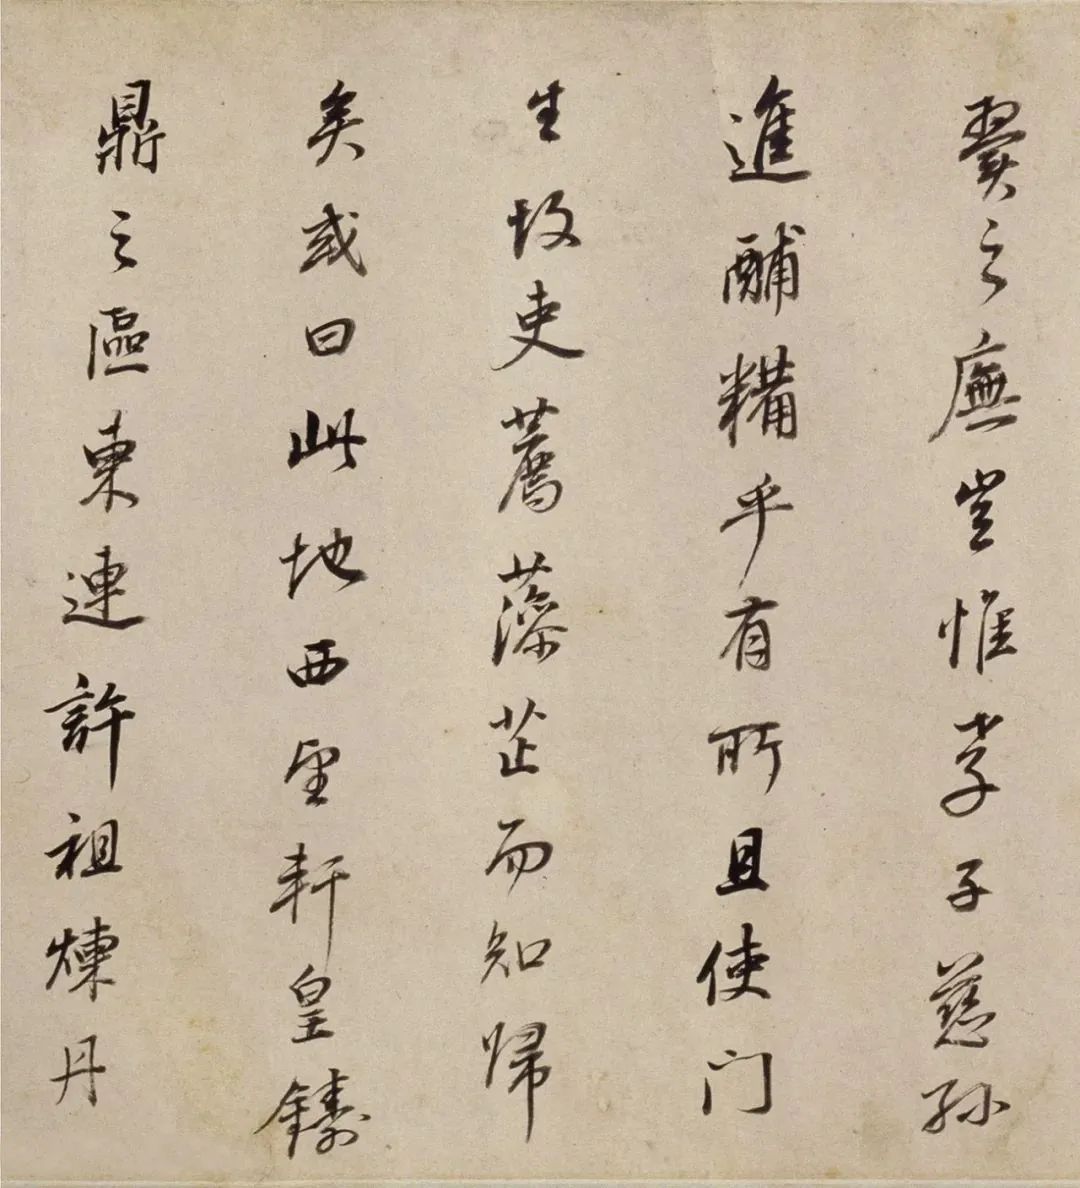 翼之廡豈惟孝子慈孫
進酺糒乎有所且使門
生故吏薦藻芷而知歸
矣或曰此地西望軒皇鑄
鼎之區東連許祖煉丹